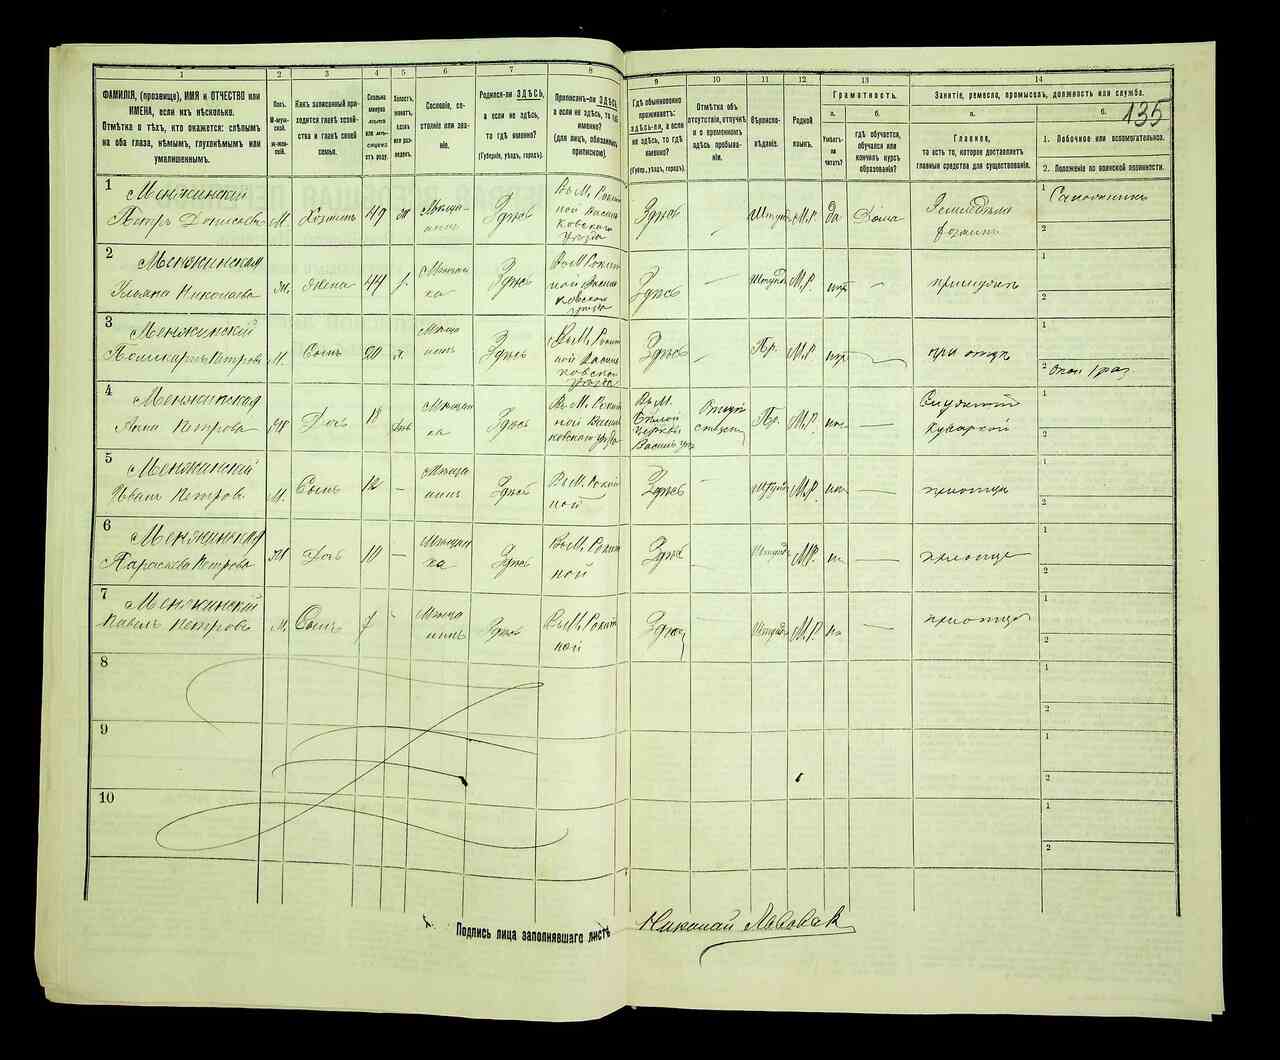 135
1 2 3 4 5 6 7 8 9 10 11 12 13 14
ФАМИЛІЯ, (прозвище), ИМЯ и ОТЧЕСТВО или
ИМЕНА, если ихъ нѣсколько.
Отмѣтка о тѣхъ, кто окажется: слѣпымъ
на оба глаза, нѣмымъ, глухонѣмымъ или
умалишеннымъ.
Полъ.
М-муж-
ской.
ж-жен-
скій.
Какъ записанный при-
ходится главѣ хозяй-
ства и главѣ своей
семьи.
Сколько
минуло
лѣтъ
или мѣ-
сяцевъ
отъ роду.
Холостъ,
женатъ,
вдовъ
или раз-
веденъ.
Сословіе, со-
стояніе или зва-
ніе.
Родился-ли ЗДѢСЬ,
а если не здѣсь,
то гдѣ именно?
(Губернія, уѣздъ, городъ).
Приписанъ-ли ЗДѢСЬ,
а если не здѣсь, то гдѣ
именно?
(для лицъ, обязанныхъ
припискою).
Гдѣ обыкновенно
проживаетъ:
здѣсь-ли, а если
не здѣсь, то гдѣ
именно?
(Губер., уѣздъ, городъ).
Отмѣтка объ
отсутствіи, отлучкѣ
и о временномъ
здѣсь пребыва-
ніи.
Вѣроиспо-
вѣданіе.
Родной
языкъ.
Грамотность.
а.
Умѣетъ-
ли
читать?
б.
гдѣ обучается,
обучался или
кончилъ курсъ
образованія?
Занятіе, ремесло, промыселъ, должность или служба.
а.
Главное,
то есть то, которое доставляетъ
главныя средства для существованія.
б.
1. Побочное или вспомогательное.
2. Положеніе по воинской повинности.
1
Менжинскій
Петръ Денисовъ М. Хозяинъ 49 Мѣща-
нинъ Здѣсь
Въ М. Рокит
ной Васил
ковскаго
уѣзда
Здѣсь М.Р. да Дома
1
2
2
Менжинская
Ульяна Николаева Ж. Жена 44 Мѣщан
ка Здѣсь
Въ М. Рокит
ной Васил
ковскаго
уѣзда
Здѣсь — М.Р.
1
2
3
Менжинскій
Петровъ М. Сынъ 20 х. Мѣща
нинъ Здѣсь
Въ М. Рокит
ной Васил
ковскаго
уѣзда
Здѣсь — Пр. М.Р. при отцѣ
1
2
4
Менжинская
Анна Петрова Ж. Дочь 18 Мѣщан
ка Здѣсь
Въ М. Рокит
ной Васил
ковскаго уѣзда
Въ М.
Бѣлой
Церковь
Пр. М.Р. —
Служитъ
Кухаркой
1
2
5
Менжинскій
Иванъ Петровъ М. Сынъ 12 — Мѣща
нинъ Здѣсь
Въ М. Рокит
ной
Здѣсь — М.Р. — при отцѣ
1
2
6
Менжинская
Параскева Петрова Ж. Дочь 10 — Мѣщан
ка Здѣсь
Въ М. Рокит
ной
Здѣсь М.Р. — при отцѣ
1
2
7
Менжинскій
Павелъ Петровъ М. Сынъ 7 Мѣща
нинъ Здѣсь
Въ М. Рокит
ной
Здѣсь М.Р. — при отцѣ
1
2
8
1
2
9
1
2
10
1
2
Подпись лица заполнявшаго листъ
Николай